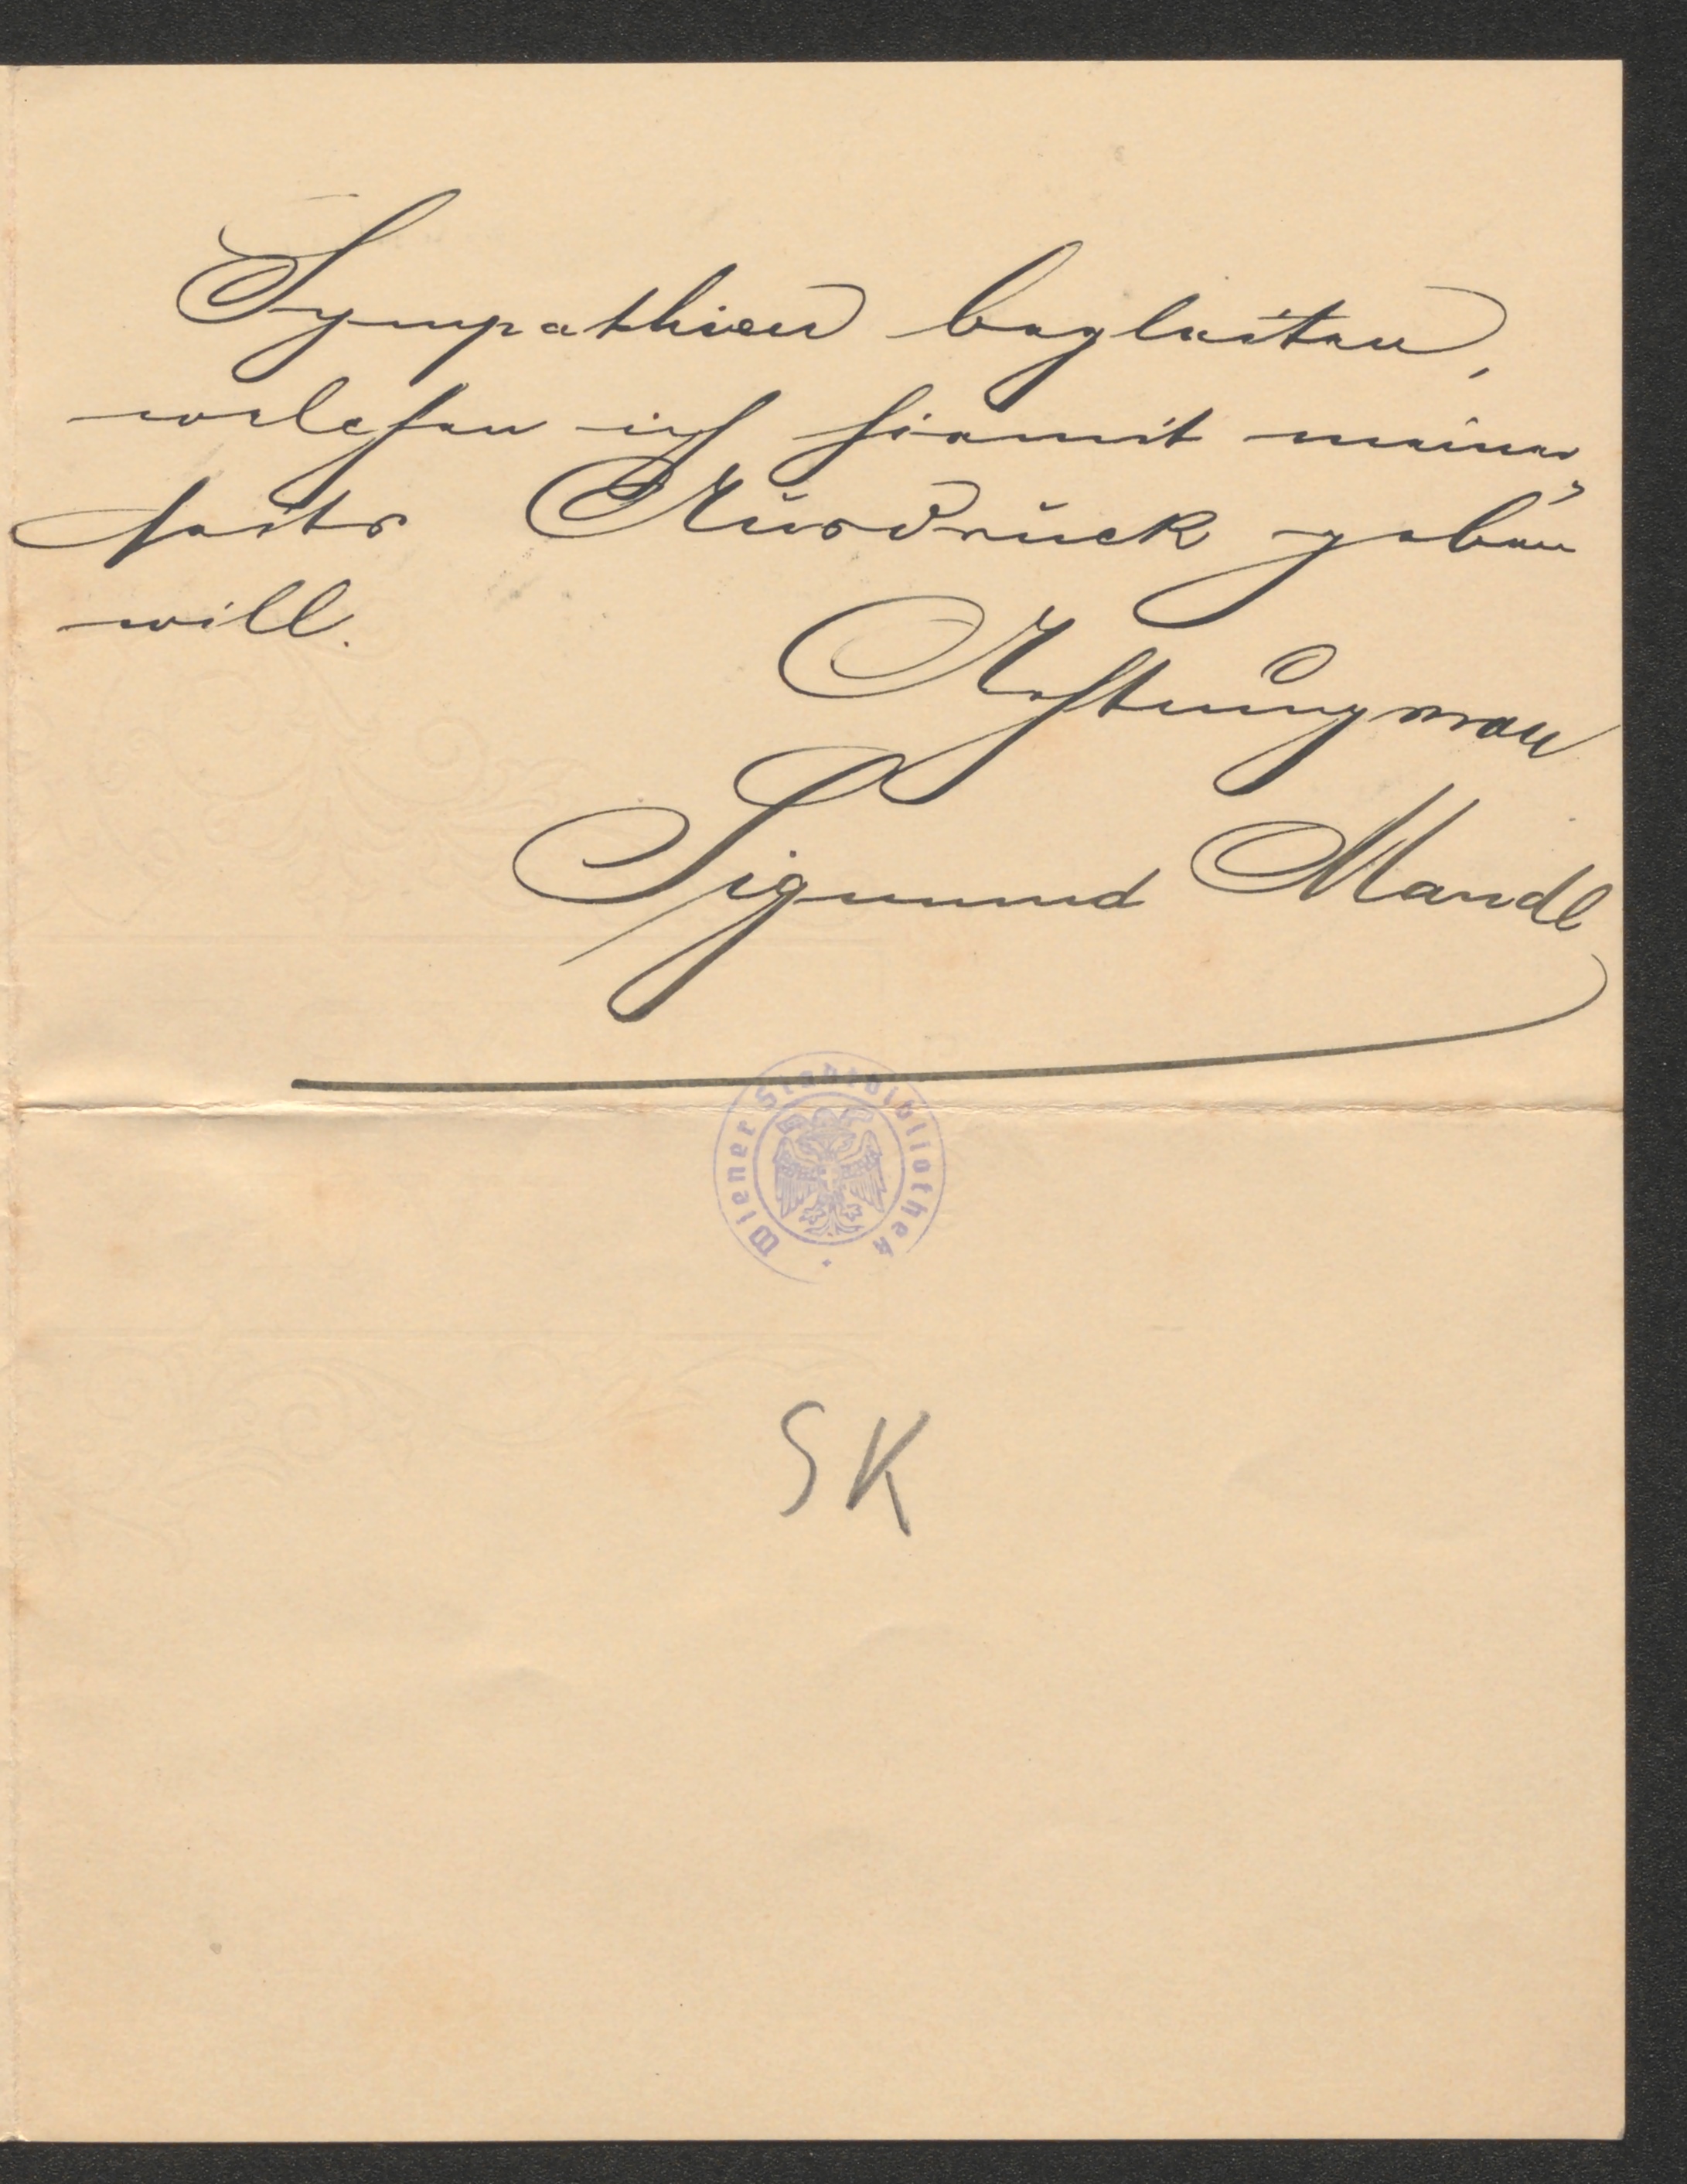 Sympathien begleiten,
welchen ich hiermit meiner-
seits Ausdruck geben
will.
Achtungsvoll
Sigmund Mandl
Wiener Stadtbibliothek
SK